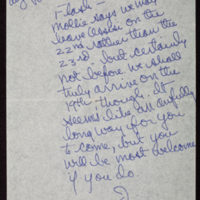 Flash —
Mollie says we may
leave London on the
22nd rather than the
23rd, but certainly
not before. We shall
truly arrive on the
19th though. It
seems like an awfully
long way for you
to come, but you
will be most welcome
if you do.